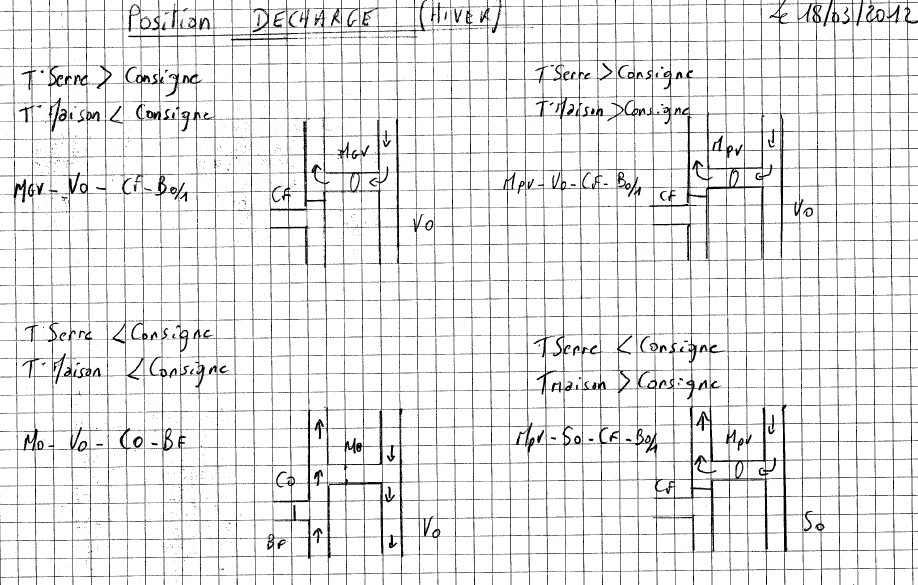 Position DECHARGE (HIVER)
Le 18/03/2012
T° Serre > Consigne
T° Maison < Consigne
MGV - VO - CF - BO/1
MGV
O
CF
VO
T Serre > Consigne
T° Maison > Consigne
MPV - VO - CF - BO/1
MPV
O
CF
VO
T Serre < Consigne
T° Maison < Consigne
MO - VO - CO - BF
MO
CO
BF
VO
T Serre < Consigne
T Maison > Consigne
MPV - SO - CF - BO/1
MPV
O
CF
SO